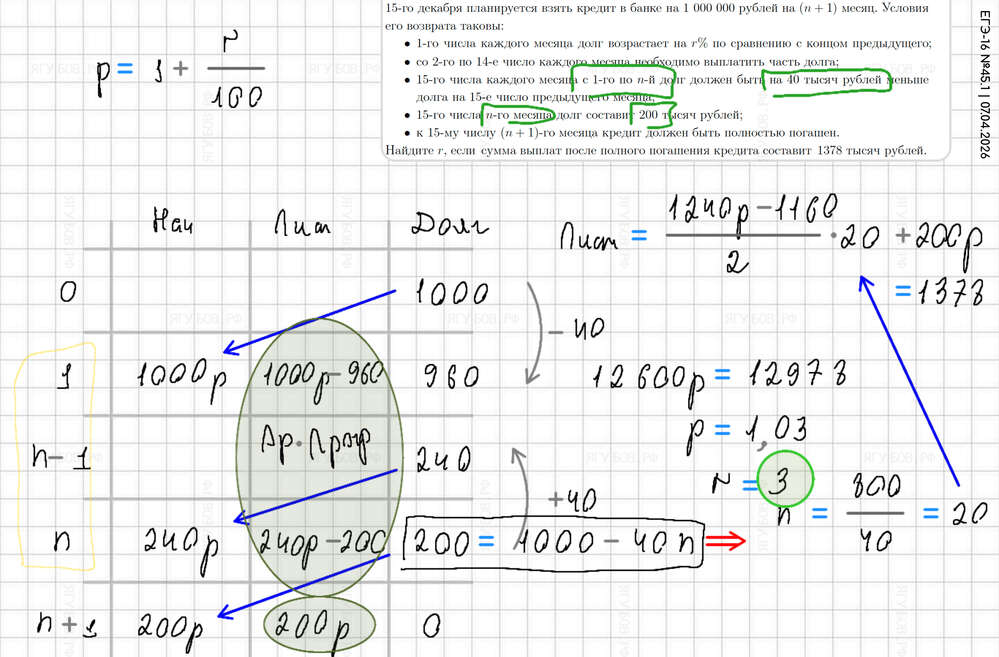 15-го декабря планируется взять кредит в банке на 1 000 000 рублей на (n + 1) месяц. Условия
его возврата таковы:
• 1-го числа каждого месяца долг возрастает на r% по сравнению с концом предыдущего;
• со 2-го по 14-е число каждого месяца необходимо выплатить часть долга;
• 15-го числа каждого месяца с 1-го по n-й долг должен быть на 40 тысяч рублей меньше
долга на 15-е число предыдущего месяца;
• 15-го числа n-го месяца долг составит 200 тысяч рублей;
• к 15-му числу (n + 1)-го месяца кредит должен быть полностью погашен.
Найдите r, если сумма выплат после полного погашения кредита составит 1378 тысяч рублей.
ЕГЭ-16 №45.1 | 07.04.2026
p = 1 + r/100
Нач Лист Долг
0 1000
- 40
1 1000p 1000p - 960 960
n - 1 Ар. Прогр 240
+40
n 240p 240p - 200 200 = 1000 - 40n ⇒
n + 1 200p 200p 0
Лист = (1240p - 1160)/2 · 20 + 200p
= 1378
12600p = 12978
p = 1,03
r = 3
n = 800/40 = 20
ЯГУБОВ.РФ